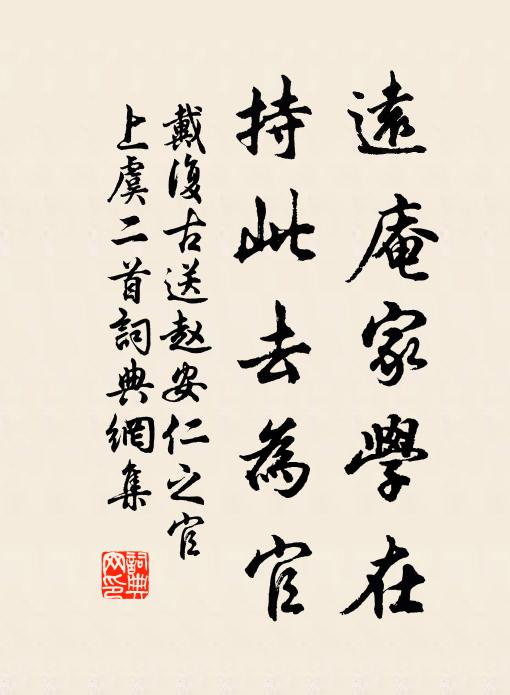 遠庵家學在
持此去為官
戴復古送赵安仁之官
上虞二首詞典網集
詞典网印